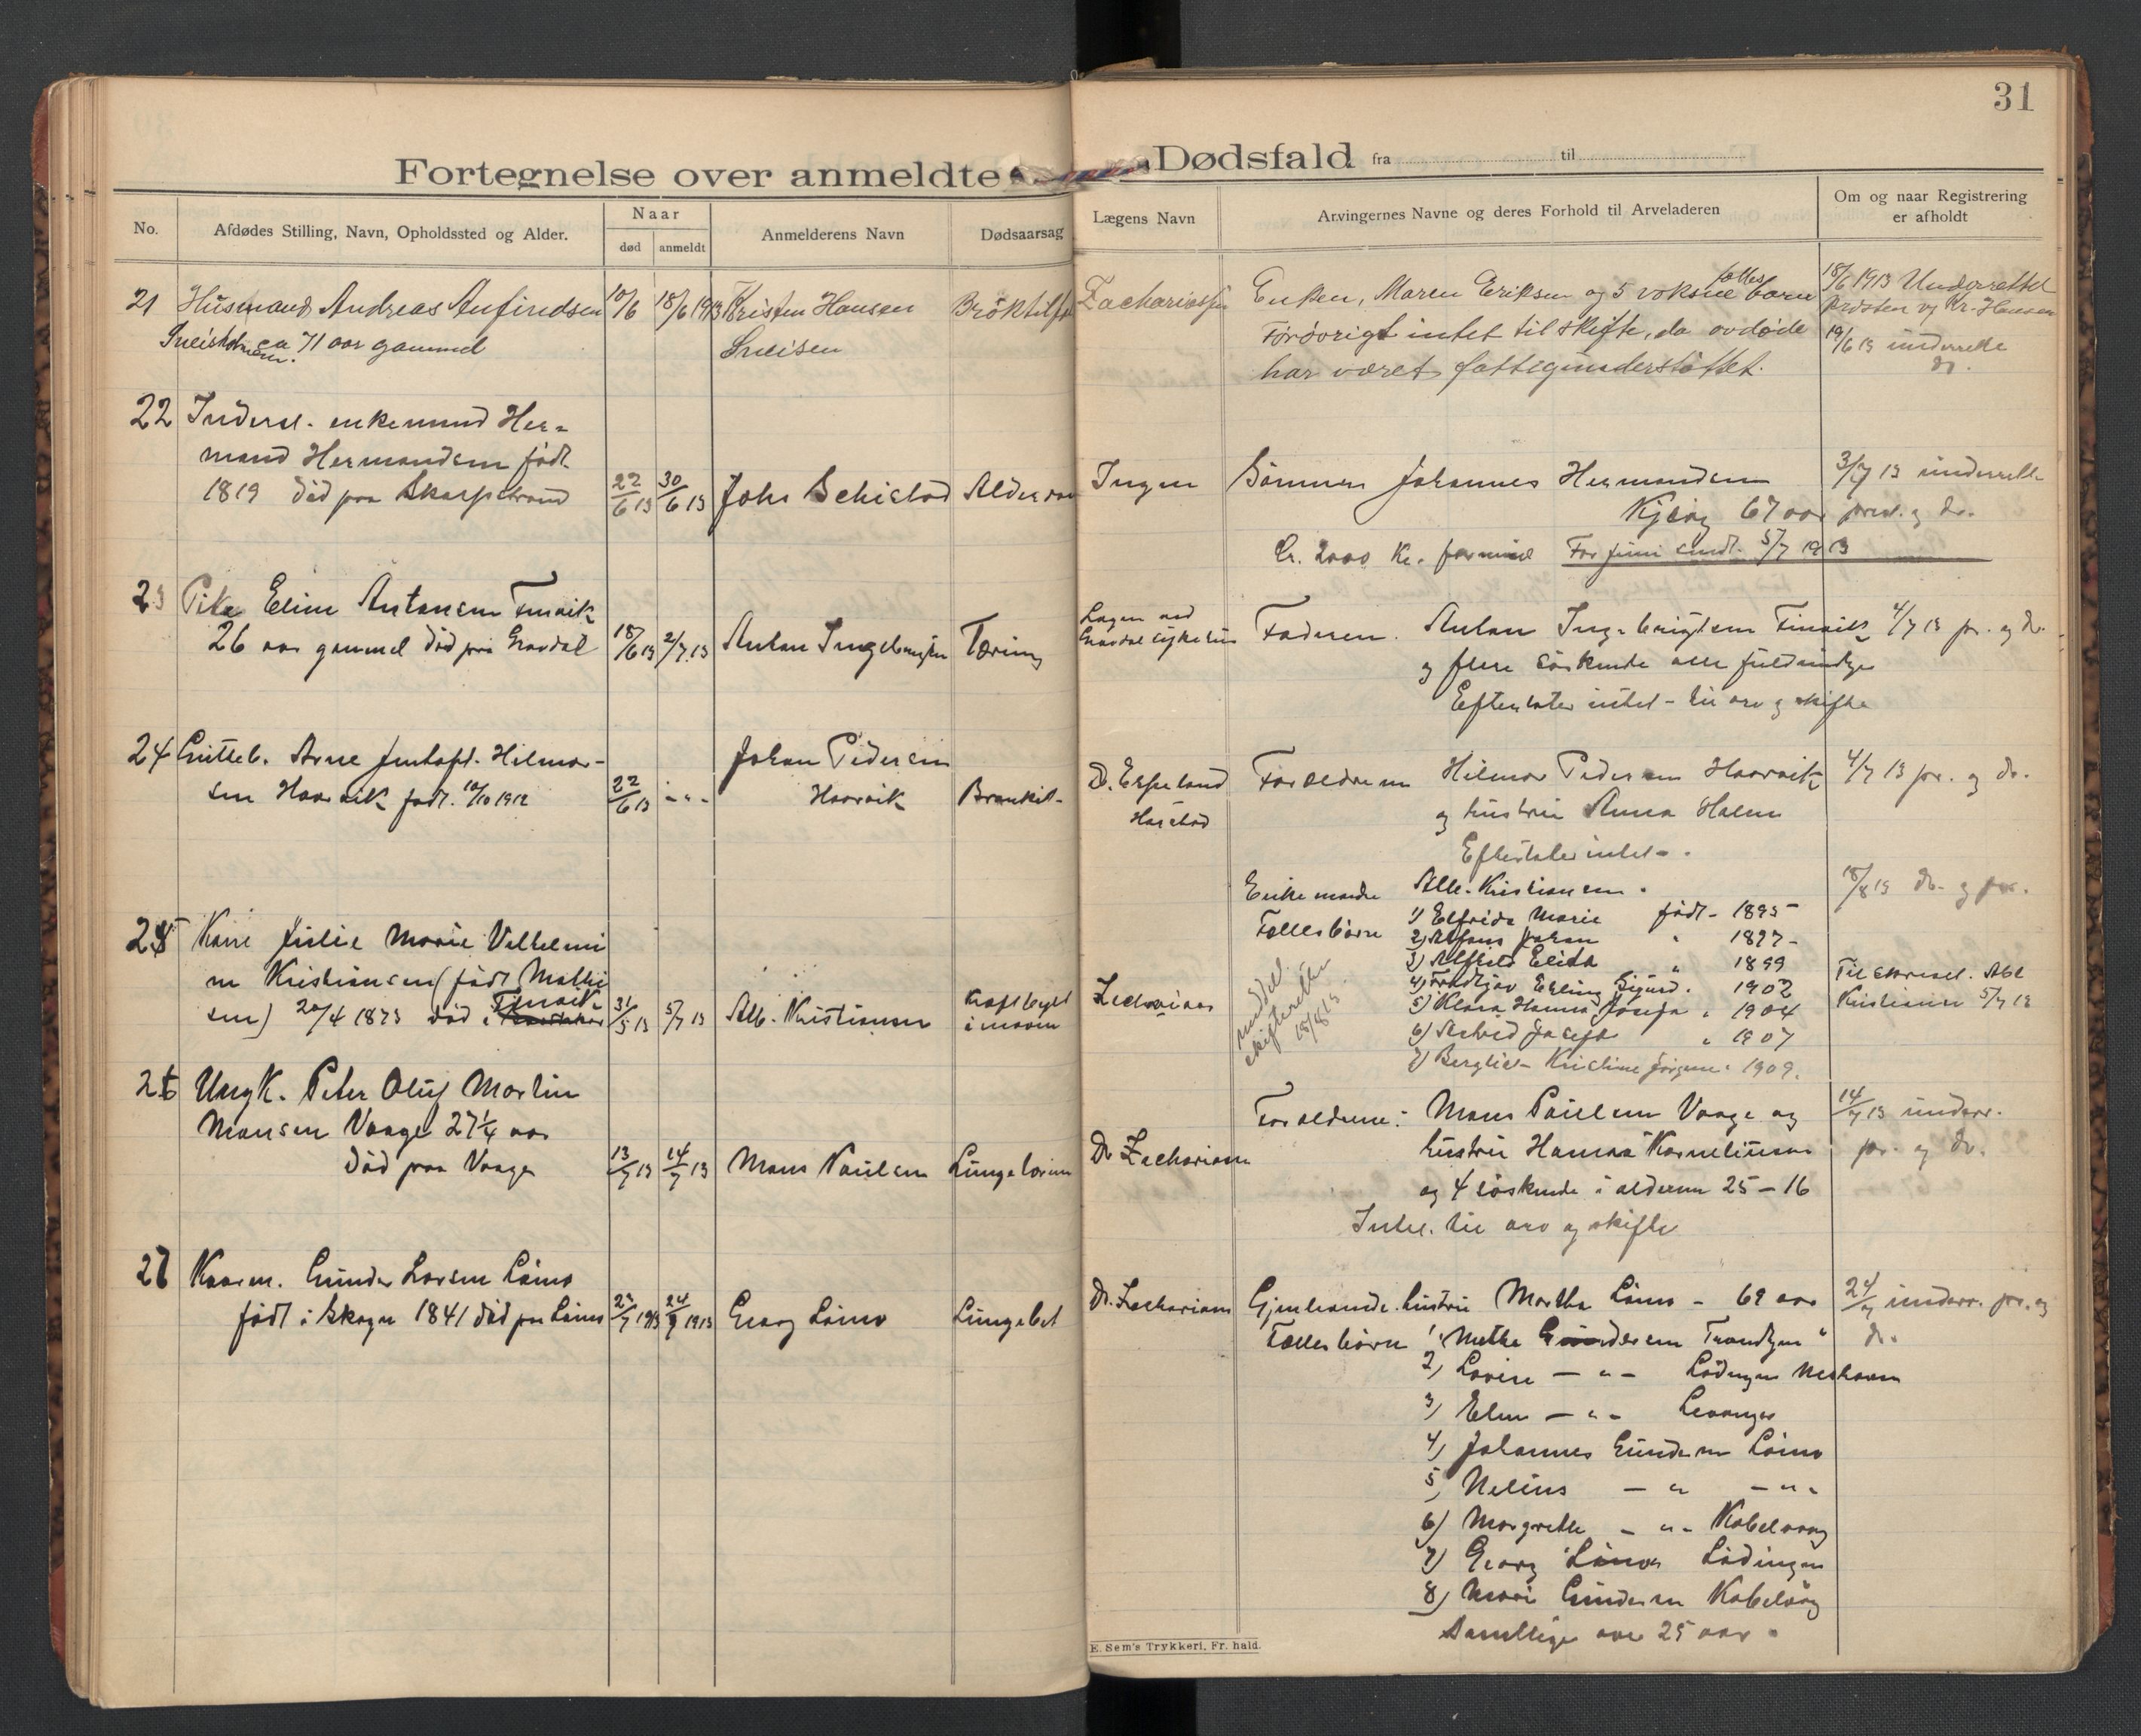 31
Fortegnelse over anmeldte Dødsfald fra til
No.
Afdødes Stilling, Navn, Opholdssted og Alder.
Naar
død
anmeldt
Anmelderens Navn
Dødsaarsag
Lægens Navn
Arvingernes Navne og deres Forhold til Arveladeren
Om og naar Registrering
er afholdt
21 Husmand Andreas Anfindsen 10/6 18/6 1913 Kristen Hansen
ca 71 aar gammel
Enken, Maren Eriksen og 5 voksne fælles børn
Forøvrigt intet til skifte, da avdøde
har været fattigunderstøttet.
18/6 1913 Underrettet
presten og Kr. Hansen
19/6 13 underrette
do.
22 Inderst. enkemand Her-
mand Hermandsen født
1819 død paa Skarpstrand 22/6 13 30/6 13 Johs Schistad
Ingen
Sønnen Johannes Hermandsen
67 aar
Ca. 2000 Kr. formue For juni sendt 5/7 1913
3/7 13 underrette
23 Pike Eline Antonsen Finvik
26 aar gammel død paa Gravdal 18/6 13 2/7 13 Anton Ingebrigtsen Tæring
Lægen ved
Gravdal sykehus
Faderen. Anton Ingebrigtsen Finvik
og flere søskende alle fuldmyndige
Efterlater intet - til arv og skifte
4/7 13 pr. og dr.
24 Gutteb. Arne Hilmar-
sen Haarvik født. 10/10 1912 22/6 13 - " -
Johan Pedersen
Haarvik
D. Espeland
Harstad
Forældrene Hilmar Pedersen Haarvik
og hustru Anna Halen
Efterlater intet -.
4/7 13 pr. og dr.
25 Kone Julie Marie Vilhelmi
ne Kristiansen (født Mathi
sen) 20/4 1873 død i Finvik 31/5 13 5/7 13 Alb. Kristiansen
Enkemand Alb. Kristiansen.
Fællesbørn 1) Elfrida Marie født - 1895
2) Alfons Johan " 1897 -
3) Alfhild Elida " 1899
4) Fridtjov Erling Sigurd " 1902
5) Klara Hanna Josefa " 1904
6) Astrid Josefa " 1907
7) Bergliot Kristine " 1909.
meddel.
skifteretten
18/8 13.
18/8 13 dr. og pr.
Kristiansen 5/7 13
26 Ungk. Peter Oluf Martin
Monsen Vaage 27¼ aar
død paa Vaage 13/7 13 14/7 13 Mons Paulsen
Dr Zachariasen
Forældrene: Mons Paulsen Vaage og
hustru Hanna Korneliusen
og 4 søskende i alderen 25 - 16
Intet. til arv og skifte
14/7 13 underr.
pr. og dr.
27 Kaarm. Gunder Larsen Låino
født i Skogn 1841 død paa 23/7 1913 24/7 1913 Georg
Dr. Zachariasen
Gjenlevende hustru Martha - 69 aar
Fællesbørn 1) Mette Gundersen Trondhjem
2) Lovise - " - Lødingen
3) Elen - " - Levanger
4) Johannes Gundersen
5) Nelius - " - " -
6) Margrethe - " - Kabelvaag
7) Georg Lødingen
8) Marie Gundersen Kabelvåg
Samtlige over 25 aar.
24/7 underr. pr. og
dr.
E. Sem's Trykkeri, Fr. hald.